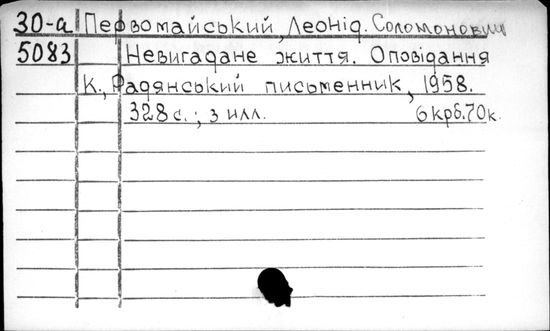 30-а Первомайський, Леонід. Соломонович
5083 Невигадане життя. Оповідання
К., Радянський письменник, 1958.
328 с.; з илл. 6 крб. 70 к.